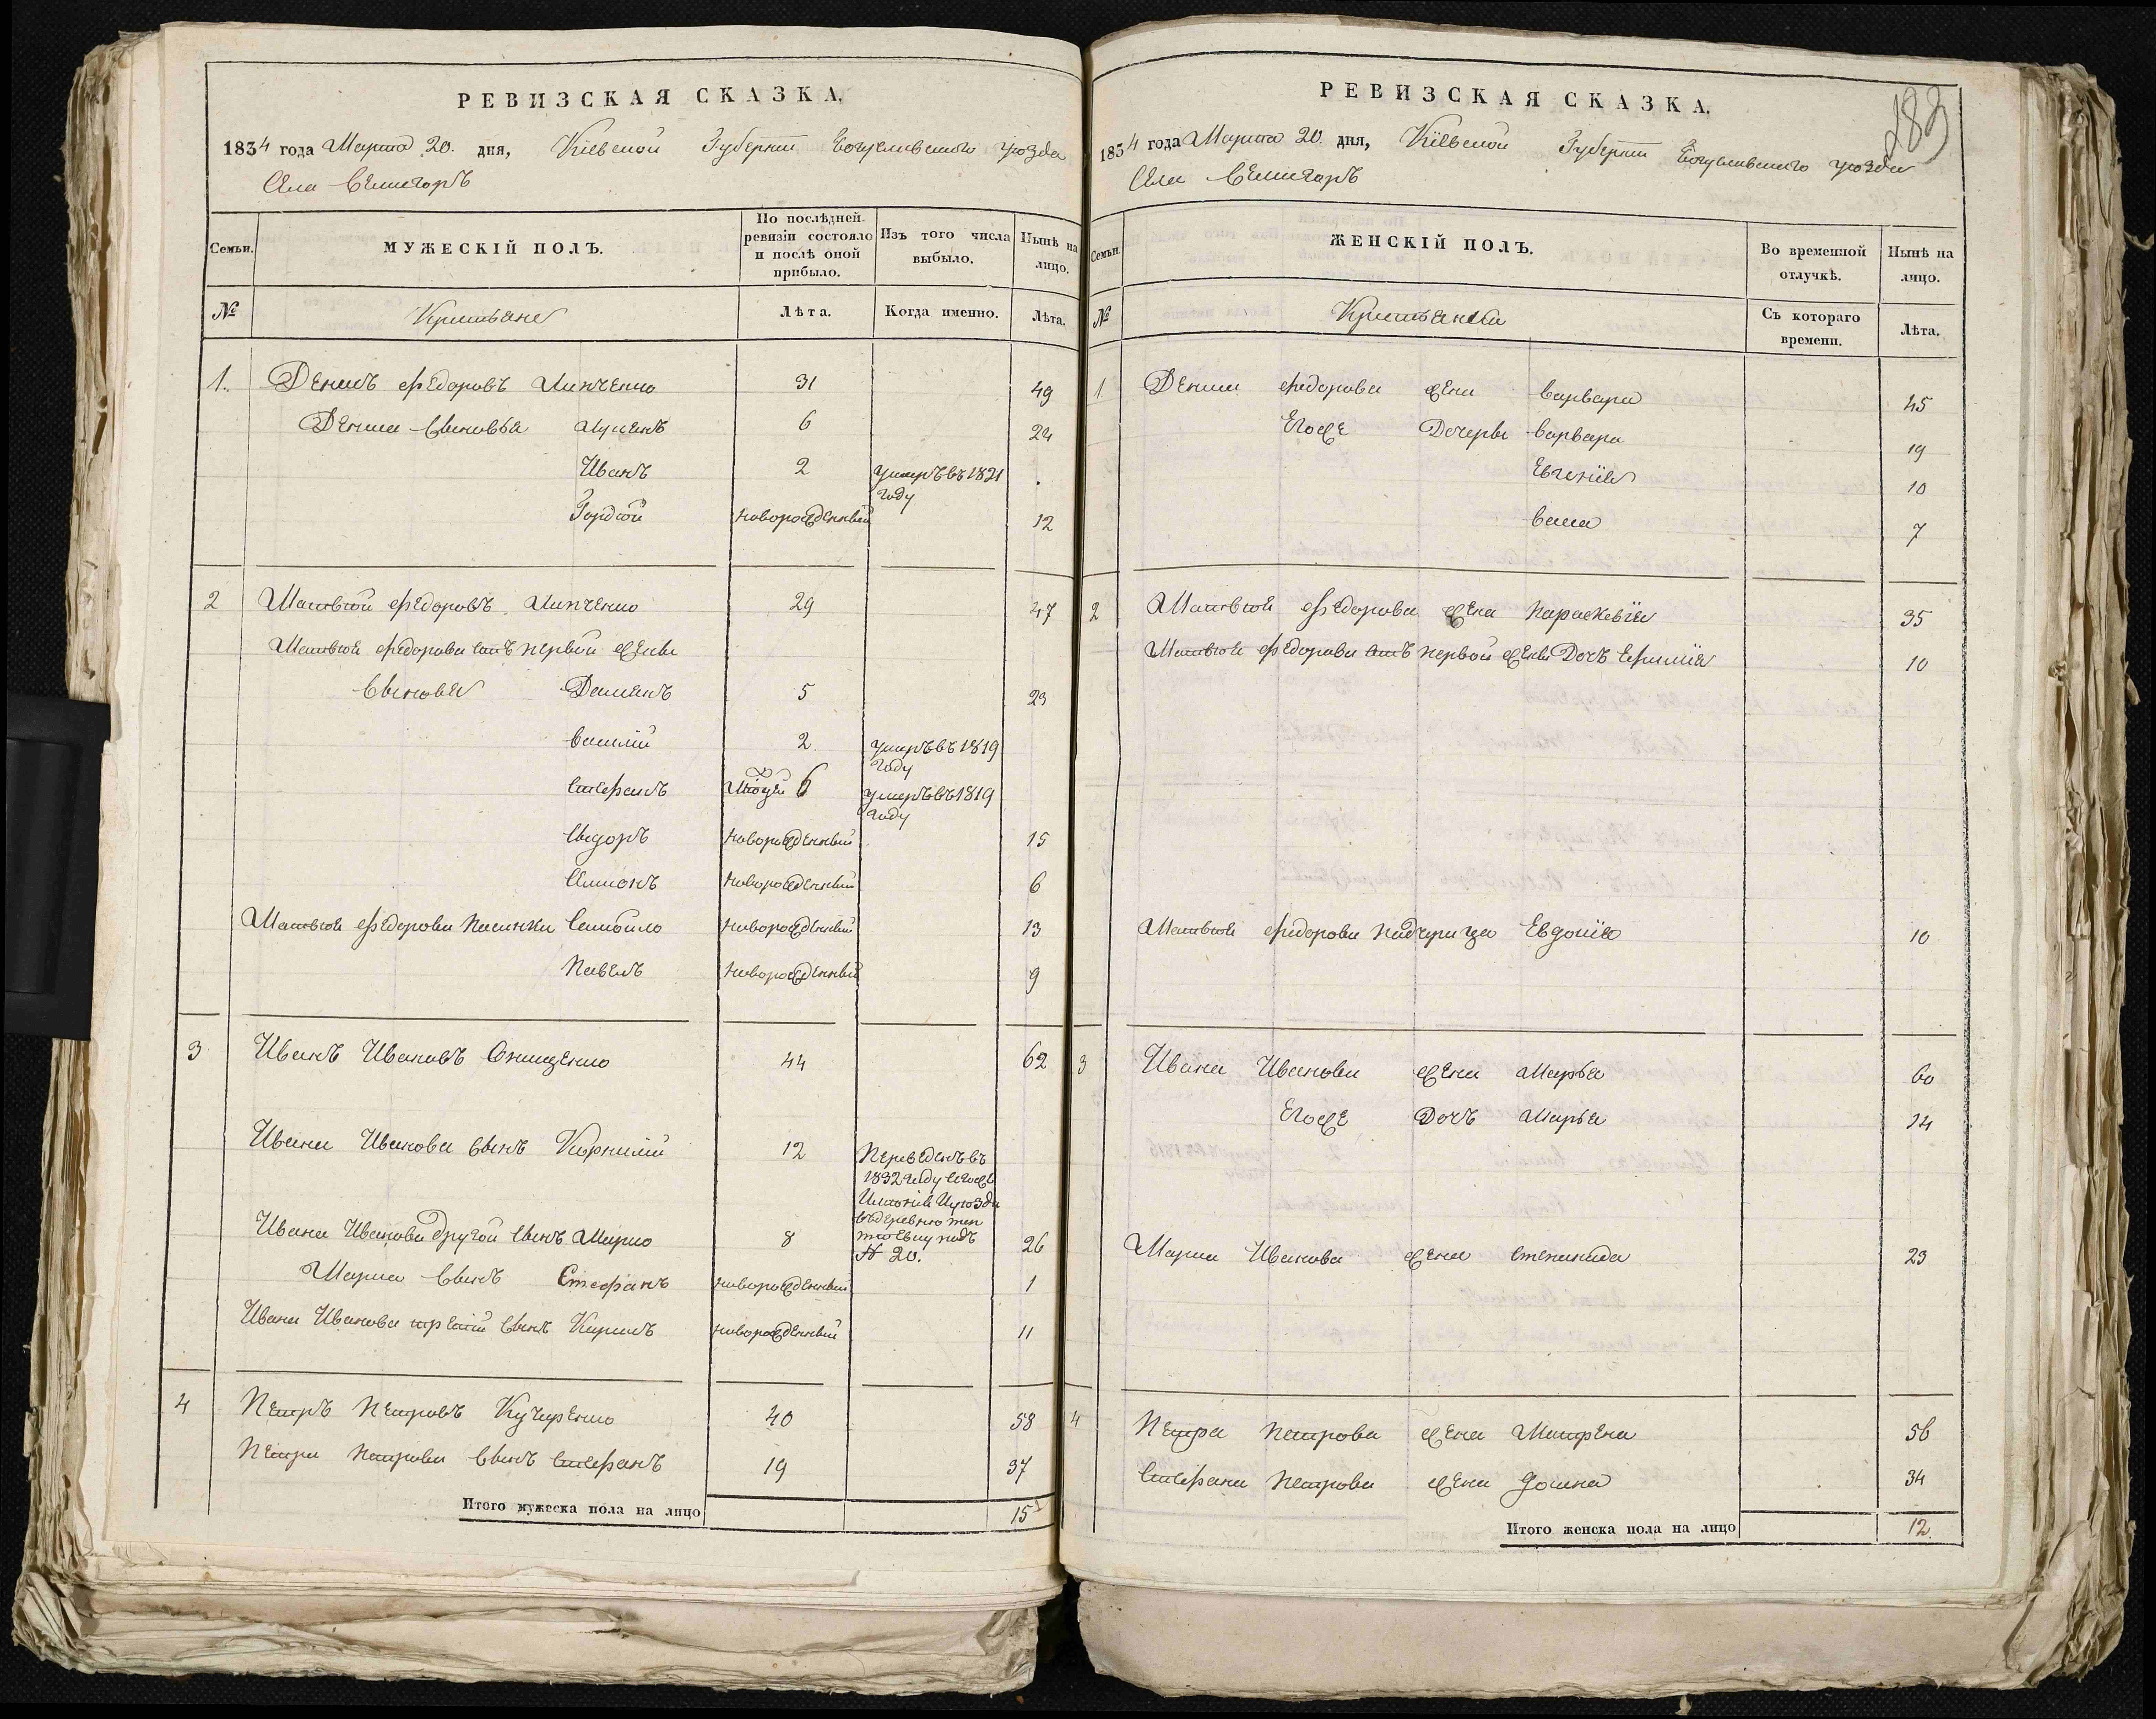 РЕВИЗСКАЯ СКАЗКА.
1834 года Марта 20. дня, Кіевской Губерніи Богуславского уѣзда
Села Семигоръ
Семьи. МУЖЕСКІЙ ПОЛЪ. По послѣдней ревизіи состояло и послѣ оной прибыло. Изъ того числа выбыло. Нынѣ на лицо.
№ Крестьяне Лѣта. Когда именно. Лѣта.
1. Денисъ Федоровъ Липченко 31 49
Дениса Сыновья 6 24
Иванъ 2 умеръ въ 1821 году .
Гордѣй новорожденный 12
2 Матвѣй Федоровъ Липченко 29 47
Матвѣя Федорова отъ первой жены
Сыновья Демянъ 5 23
василій 2. умеръ въ 1819 году
Стефанъ 6 умеръ въ 1819 году
Сидоръ новорожденный 15
Симионъ новорожденный 6
Матвѣя Федорова пасинки Самойло новорожденный 13
Павелъ новорожденный 9
3 Иванъ Ивановъ Онищенко 44 62
Ивана Иванова сынъ Корнилій 12 Переведенъ въ
1832 году
уѣзда
въ деревню
подъ
№ 20.
Ивана Иванова другой сынъ Марко 8 26
Марка Сынъ Стефанъ новорожденный 1
Ивана Иванова третій сынъ Карпъ новорожденный 11
4 Петръ Петровъ Кучеренко 40 58
Петра Петрова Сынъ Стефанъ 19 37
Итого мужеска пола на лицо 15
РЕВИЗСКАЯ СКАЗКА.
183
1834 года Марта 20. дня, Кіевской Губерніи Богуславского уѣзда
Села Семигоръ
Семьи. ЖЕНСКІЙ ПОЛЪ. Во временной отлучкѣ. Нынѣ на лицо.
№ Крестьянки Съ котораго времени. Лѣта.
1 Дениса Федорова жена варвара 45
Егоже Дочеры варвара 19
Евгенія 10
васса 7
2 Матвѣя Федорова жена Параскевія 35
Матвѣя Федорова отъ первой жены Дочъ Ефимія 10
Матвѣя Федорова падчерица Евдокія 10
3 Ивана Иванова жена Марья 60
Егоже Дочъ Марья 14
Марка Иванова жена Степанида 23
4 Петра Петрова жена Матрена 56
Стефана Петрова жена Домна 34
Итого женска пола на лицо 12.